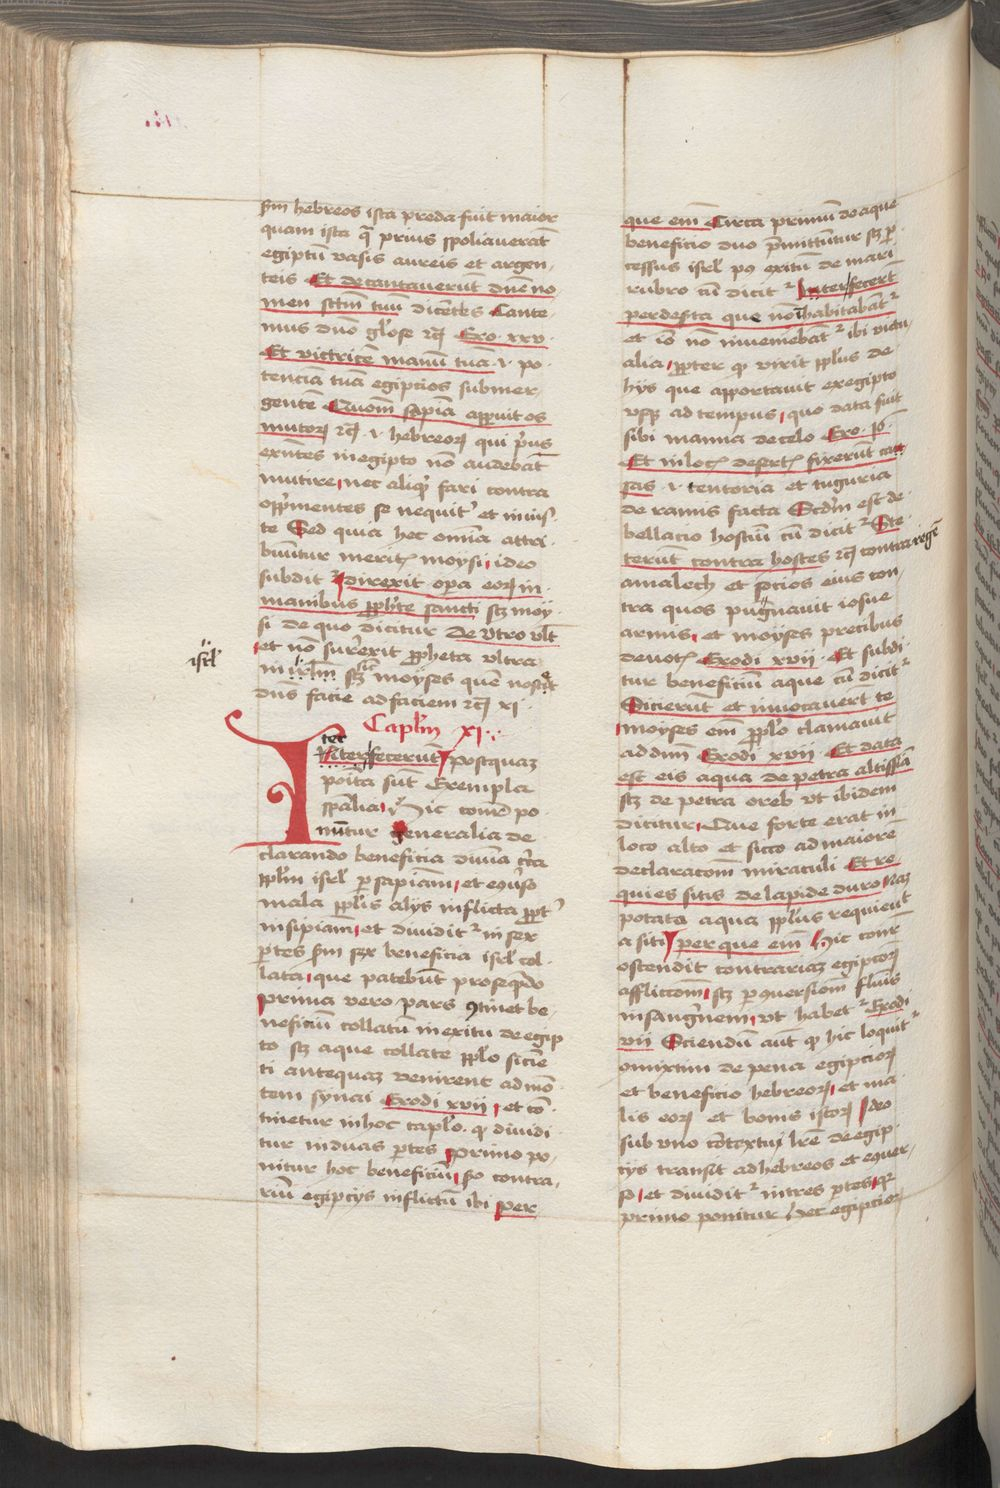 s̄m hebreos ista preda fuit maior
quam ista q̄ prius spoliauerat̄
egiptū vasis aureis et argen,
teis Et decantauerūt dn̄e no
men sctm̄ tuū dicētes Cante
mus dn̄o glose rc̄ Exo. xxv.
Et victricē manū tuā .i. po
tenciā tuā egipcios submer
gentē Quom̄ sapiā apperuit os
mutoꝝ rc̄ .i. hebreoꝝ qui prius
exn̄tes in egipto nō audebāt
mutire, nec aliqͥ fari contra
opp̄mentes se nequit̾ et iniuſ
te Sed quia hec omīa attri
buūtur merit̾ moysi, ideo
subdit̾ direxit opa eoꝝ in
manibus ꝓph̄te sancti sꝫ moy
si de quo dicitur De vtro vlt
et nō surrexit ꝓpheta vltra
in irlm̄ sꝫ moyses quē noscēt
dn̄s facie ad faciem rc̄ xi
isrl̄
Caplm̄ xi.
ter
Iter fecerūt postquaꝫ
poīta sūt Exempla
spalia, hic cōnr̄ po
nūtur generalia de
clarando beneficia diuīa circa
pplm̄ isrl̄ per sapiām, et eqūso
mala pplis alijs inflicta ppt̾
insipiam, et diuidit̾ in sex
ptes s̄m sex beneficia isrl̄ col
lata, que patebūt prosequdo
prima vero pars ꝯtinet be,
neficiū collatū in exitu de egip
to sꝫ aque collate pplo sicie
ti antequaꝫ venirent ad mō
tem synai Exodi xvii, et cō
tinetur in hoc caplo. qͥ diuidi
tur in duas ptes primo po,
nitur hoc beneficiū, sꝫ contra,
riū egipcijs inflictū ibi per
que em̄ Circa primū de aque
beneficio duo p̄mittūntur sꝫ p̄
cessus isrl̄ pꝰ exitū de mari
rubro cū dicit̾ Inter fecerūt
per desta que nō inhabitabāt̾
et iō nō inueniebāt̾ ibi victu,
alia, ppter qͥ vixit pplus de
hijs que apportauit ex egipto
vsqꝫ ad tempus, quo data fuit
sibi manna de celo Exo. 16.
Et in locꝭ desertꝭ fixerūt ca
sas .i. tentoria et tuguria
de ramis facta Scdm̄ est de
bellacio hostiū cū dicit̾ Ste
terūt contra hostes rc̄ contra regē
amalech et socios eius con,
tra quos pugnauit iosue
armis, et moyses precibus
deuotꝭ Exodi xvii. Et subdi
tur beneficiū aque cū dicit̾
Sicierūt et inuocauerūt te
moyses em̄ pplo clamauit
ad dnm̄ Exodi xvii Et data
est eis aqua de petra altissīa
sꝫ de petra oreb vt ibidem
dicitur, Que forte erat in
loco alto et sicco ad maiorē
declaracōm miraculi Et re
quies sitis de lapide duro Naꝫ
potata aqua pplus requieuit
a siti, per que em̄ Hic cōnr̄
ostendit contrariaꝫ egipcioꝝ
afflictōm, sꝫ p ꝯuersionē fluīs
in sanguinem, vt habet̾ Exodi
vii Sciendū aūt qͥ hic loquit̾
ꝯmixtim de pena egipcioꝝ
et beneficio hebreoꝝ, et ma
lis eoꝝ et bonis istoꝝ Ideo
sub vno cōtextu lr̄e de egip,
cijs transit ad hebreos et equer,
so, et diuidit̾ in tres ptes, qꝛ
primo ponitur hec egipcioꝝ